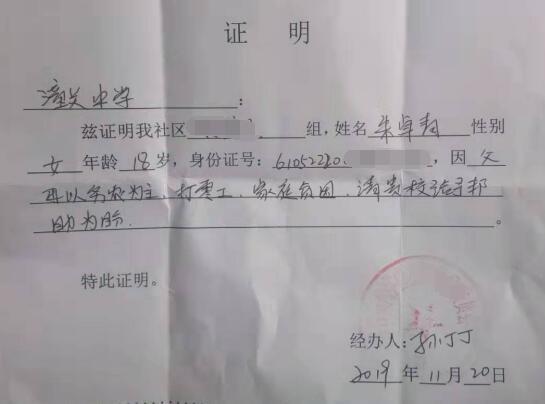 证 明
潼关中学：
兹证明我社区 组，姓名 朱卓 性别
女 年龄 18 岁，身份证号：6105222，因 父
母以务农为主，打零工，家庭贫困，请贵校给予邦
助为盼.。
特此证明。
经办人：孙丁丁
2019 年 11 月 20 日